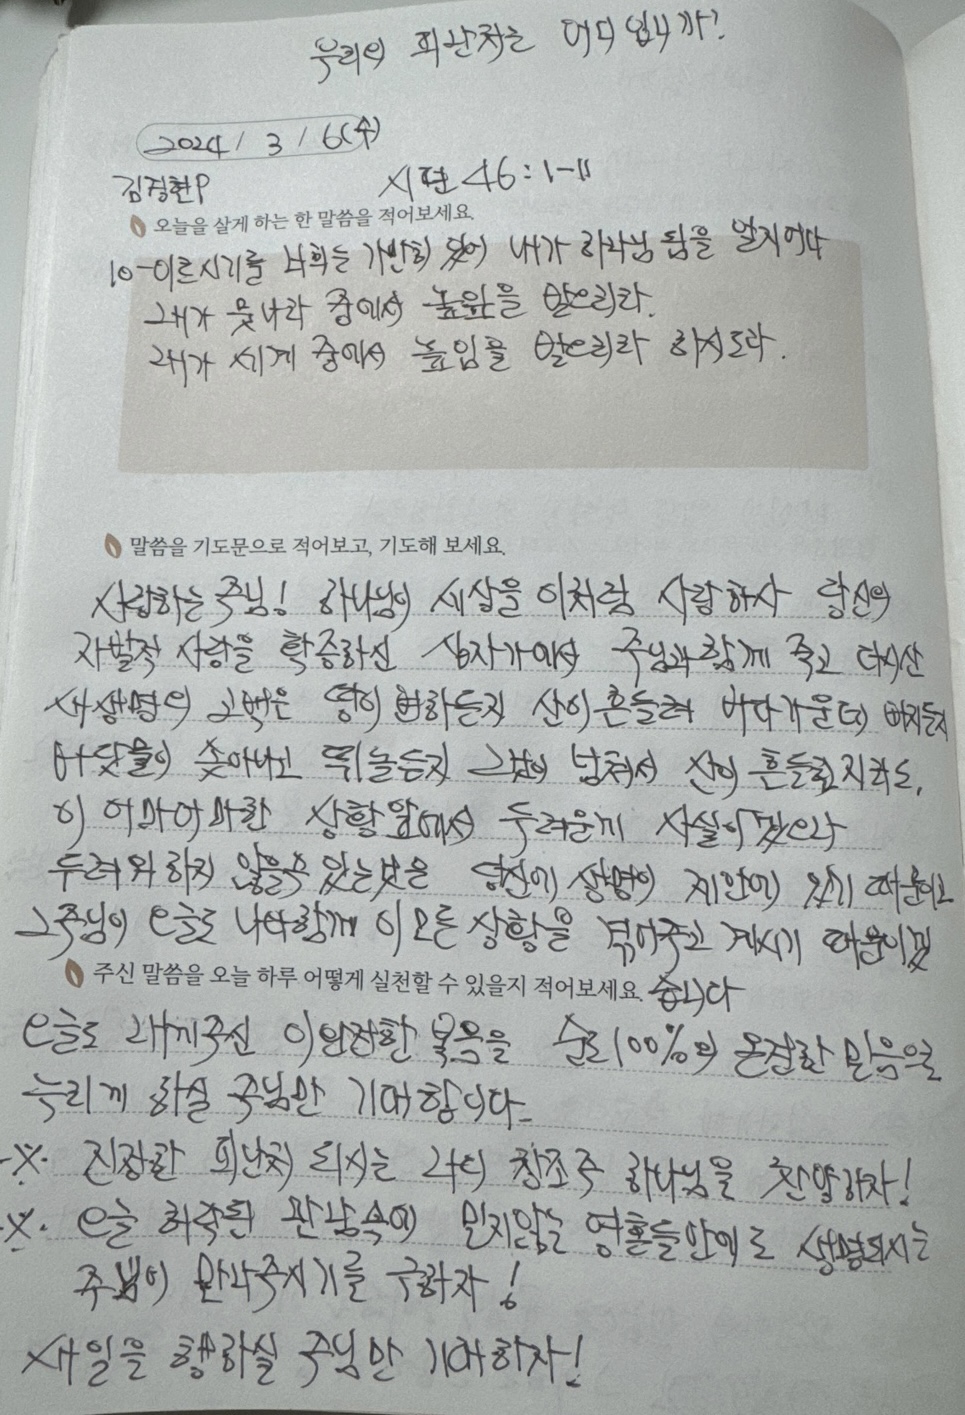 우리의 피난처는 어디 입니까?
2024 / 3 / 6(수)
김정현P 시편 46:1-11
오늘을 살게 하는 한 말씀을 적어보세요.
10-이르시기를 너희는 가만히 있어 내가 하나님 됨을 알지어다
내가 뭇나라 중에서 높임을 받으리라.
내가 세계 중에서 높임을 받으리라 하시도다.
말씀을 기도문으로 적어보고, 기도해 보세요.
사랑하는 주님! 하나님이 세상을 이처럼 사랑하사 당신의
자발적 사랑을 확증하신 십자가에서 주님과 함께 죽고 다시산
새생명의 고백은 땅이 변하든지 산이 흔들려 바다가운데 빠지든지
바닷물이 솟아나고 뛰놀든지 그것이 넘쳐서 산이 흔들릴지라도,
이 어마어마한 상황앞에서 두려운게 사실이겠으나
두려워 하지 않을수 있는것은 당신에 생명이 제안에 있기 때문이고
그주님이 오늘도 나와함께 이모든 상황을 겪어주고 계시기 때문이겠
습니다
주신 말씀을 오늘 하루 어떻게 실천할 수 있을지 적어보세요.
오늘도 내게주신 이완전한 복음을 순도100%의 온전한 믿음으로
누리게 하실 주님만 기대합니다-
※. 진정한 피난처 되시는 나의 창조주 하나님을 찬양하자!
※. 오늘 허락된 만남속에 믿지않는 영혼들안에도 생명되시는
주님이 만나주시기를 구하자!
새일을 행하실 주님만 기대하자!